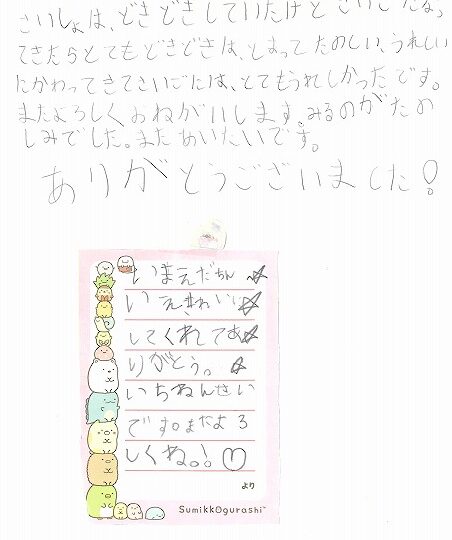 さいしょは、どきどきしていたけど さいごになっ
てきたらとてもどきどきは、とまって たのしい、うれしい
にかわってきてさいごには、とてもうれしかったです。
またよろしくおねがいします。みるのがたの
しみでした。またあいたいです。
ありがとうございました!
いまえだちん☆
いえ、きれいに☆
してくれてあ☆
りがとう。☆
いちねんせい
です。またよろ
しくね。!♡
より
SumikkOgurashi™